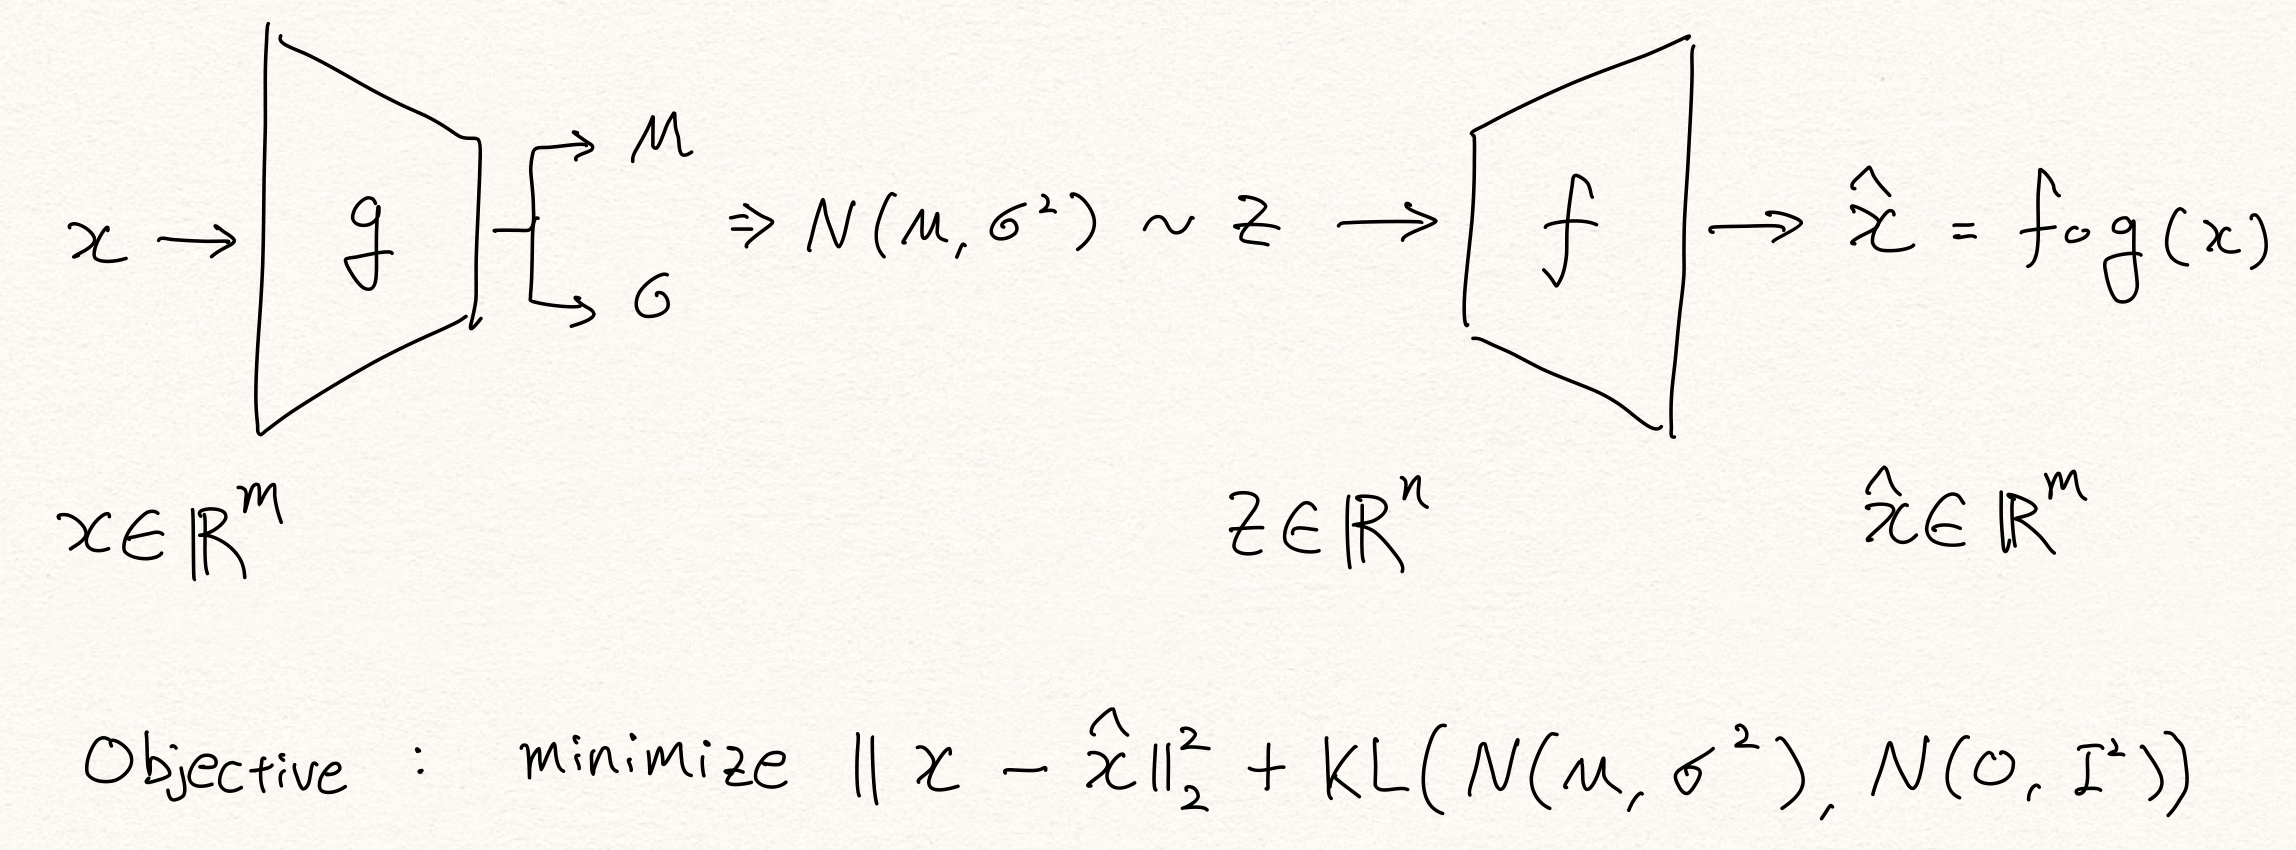 x → g → μ
σ
⇒ N(μ, σ²) ~ z → f → x̂ = f∘g(x)
x ∈ ℝᵐ z ∈ ℝⁿ x̂ ∈ ℝᵐ
Objective : minimize ‖x − x̂‖₂² + KL(N(μ, σ²), N(0, I²))